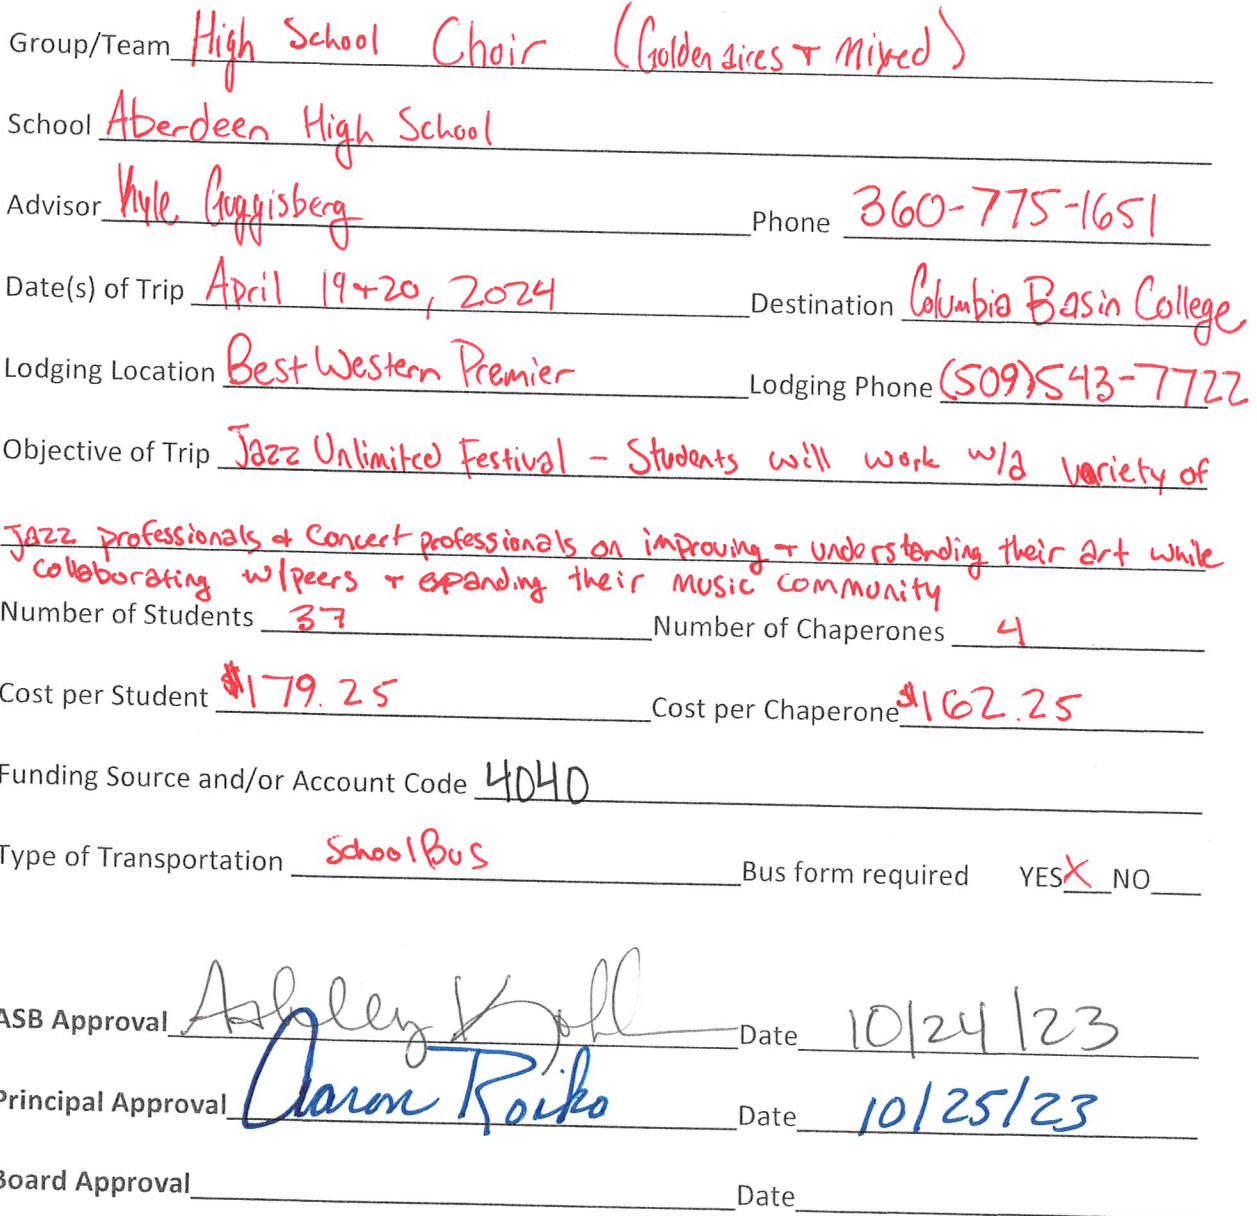 Group/Team High School Choir (Goldenaires + Mixed)
School Aberdeen High School
Advisor Kyle Guggisberg Phone 360-775-1651
Date(s) of Trip April 19+20, 2024 Destination Columbia Basin College
Lodging Location Best Western Premier Lodging Phone (509)543-7722
Objective of Trip Jazz Unlimited Festival - Students will work w/a variety of
Jazz professionals + Concert professionals on improving + understanding their art while
collaborating w/peers + expanding their music community
Number of Students 37 Number of Chaperones 4
Cost per Student $179.25 Cost per Chaperone $162.25
Funding Source and/or Account Code 4040
Type of Transportation School Bus Bus form required YES X NO
ASB Approval Ashley Kohl Date 10/24/23
Principal Approval Aaron Roiko Date 10/25/23
Board Approval Date